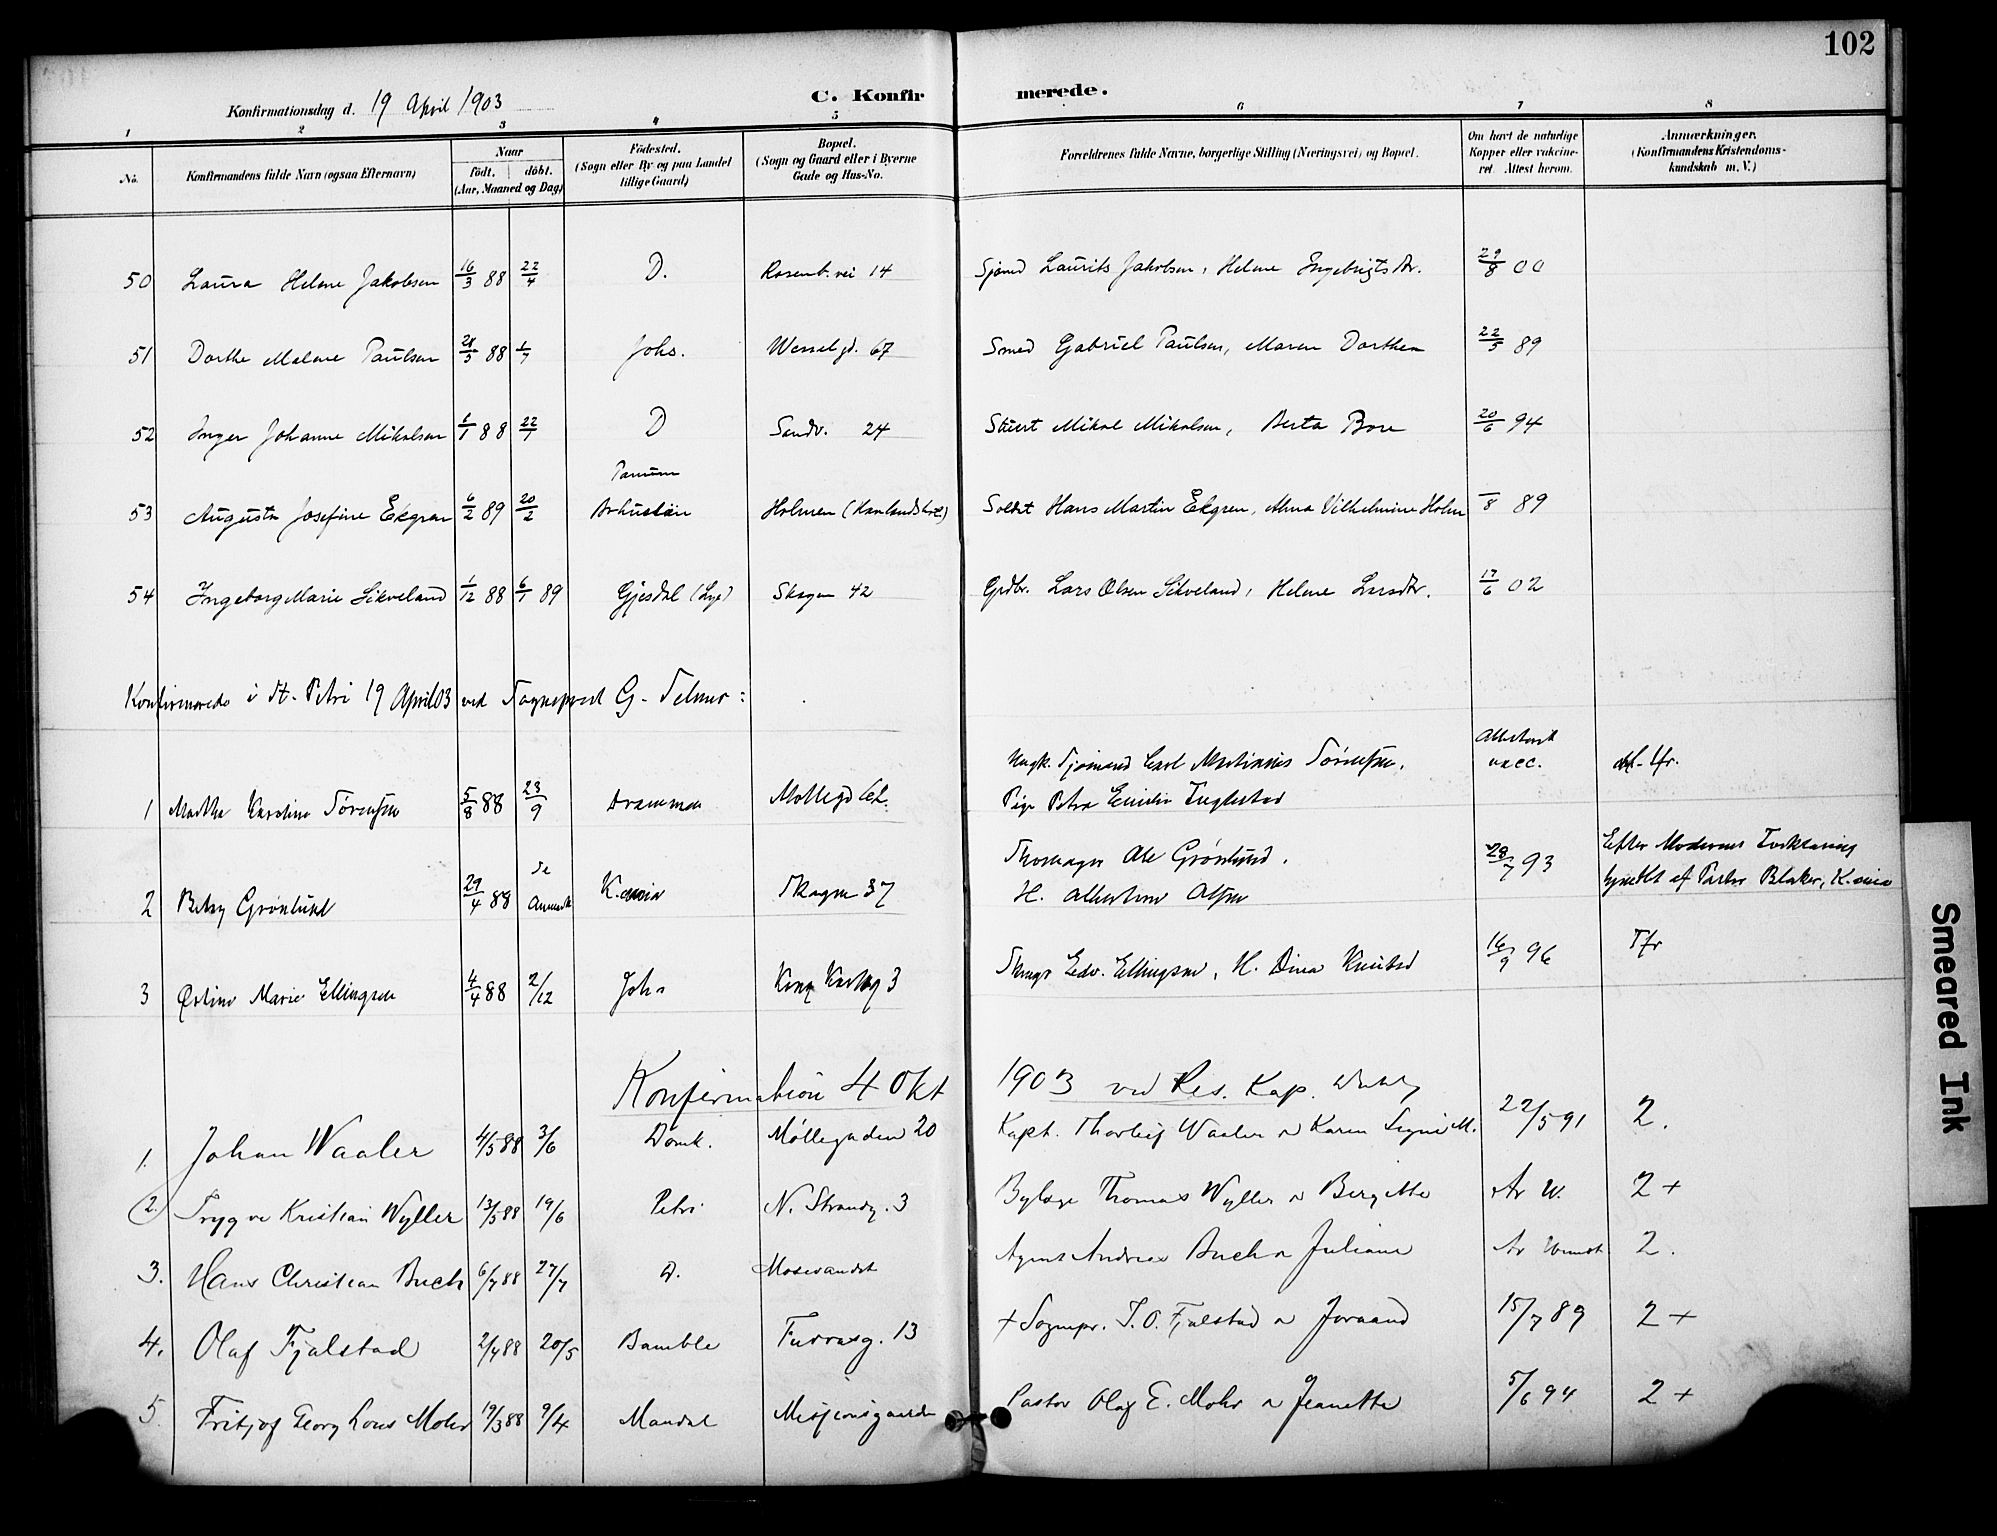 102
Konfirmationsdag d. 19 April 1903
C. Konfirmerede.
1 2 3 4 5 6 7 8
No. Konfirmandens fulde Navn (ogsaa Efternavn) Naar født. døbt. (Aar, Maaned og Dag) Fødested. (Sogn eller By og paa Landet tillige Gaard) Bopæl. (Sogn og Gaard eller i Byerne Gade og Hus-No. Forældrenes fulde Navne, borgerlige Stilling (Næringsvei) og Bopæl. Om havt de naturlige Kopper eller vakcineret. Attest herom. Anmærkninger. (Konfirmandens Kristendomskundskab m. V.)
50 Laura Helene Jakobsen 16/3 88 22/4 D. Rosenb. vei 14 Sjømd Laurits Jakobsen, Helene Ingebrigtsdtr. 29/8 00
51 Dorthe Malene Paulsen 28/5 88 1/7 Johs. Wesselgd. 67 Smed Gabriel Paulsen, Maren Dorthea 22/5 89
52 Inger Johanne Mikalsen 1/1 88 22/1 D Sandv. 24 Stuert Mikal Mikalsen, Berta Bore 20/6 94
53 Augusta Josefine Ekgren 6/2 89 20/2 Tanum Bohuslän Holmen Soldat Hans Martin Ekgren, Alma Vilhelmine Holm /8 89
54 Ingeborg Marie Sikveland 1/12 88 6/1 89 Gjesdal (Lye) Skagen 42 Grdbr. Lars Olsen Sikveland, Helene Larsdtr. 17/6 02
Konfirmerede i St. Petri 19 April 03 ved Sogneprest G. Telnes:
1 Martha Karoline Sørensen 5/8 88 23/9 Drammen Møllegd Ugk. Sjømand Carl Martinius Sørensen. Pige Petra Emilie vacc.
2 Betsy Grønlund 29/4 88 K.ania Skagen 37 Skomager Abr Grønlund. H. Albertine Olsen 28/7 93 Efter Moderens Forklaring af Pastor Blaker, K.ania
3 Østine Marie Ellingsen 4/4 88 2/12 Johs Kong Karlsg 3 Skmgr Edv. Ellingsen, H. Dina Knutsd 16/9 96 Tfr
Konfirmation 4 Okt 1903 ved Res. Kap.
1. Johan Waaler 4/5 88 3/6 Domk. Møllegaden 20 Kapt. Thorleif Waaler & Karen Signe M. 22/5 91 2.
2. Trygve Kristian Wyller 13/5 88 19/6 Petri N. Strandg. 3 Bylæge Thomas Wyller & Bergitte Av W. 2+
3. Hans Christian Buch 6/7 88 27/7 D. Mosevandet Agent Andreas Buch & Juliane Av 2.
4. Olaf Fjalstad 2/4 88 20/5 Bamble Furrasg. 13 + Sognepr. T. O. Fjalstad & Joraand 15/7 89 2+
5. Fritjof Georg Louis Mohr 19/3 88 9/4 Mandal Misjonsgaarden Pastor Olaf E. Mohr & Jeanette 5/6 94 2+
Smeared Ink